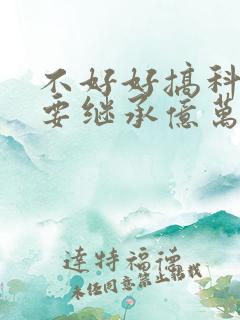 不好好搞科
要继承億萬
達特福德
未经同意禁止转载